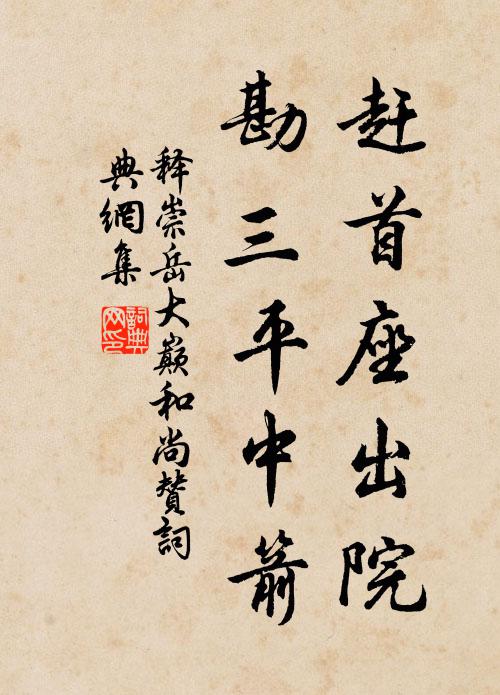 赶首座出院
勘三平中箭
释崇岳大巅和尚赞詞
典網集
詞典网印